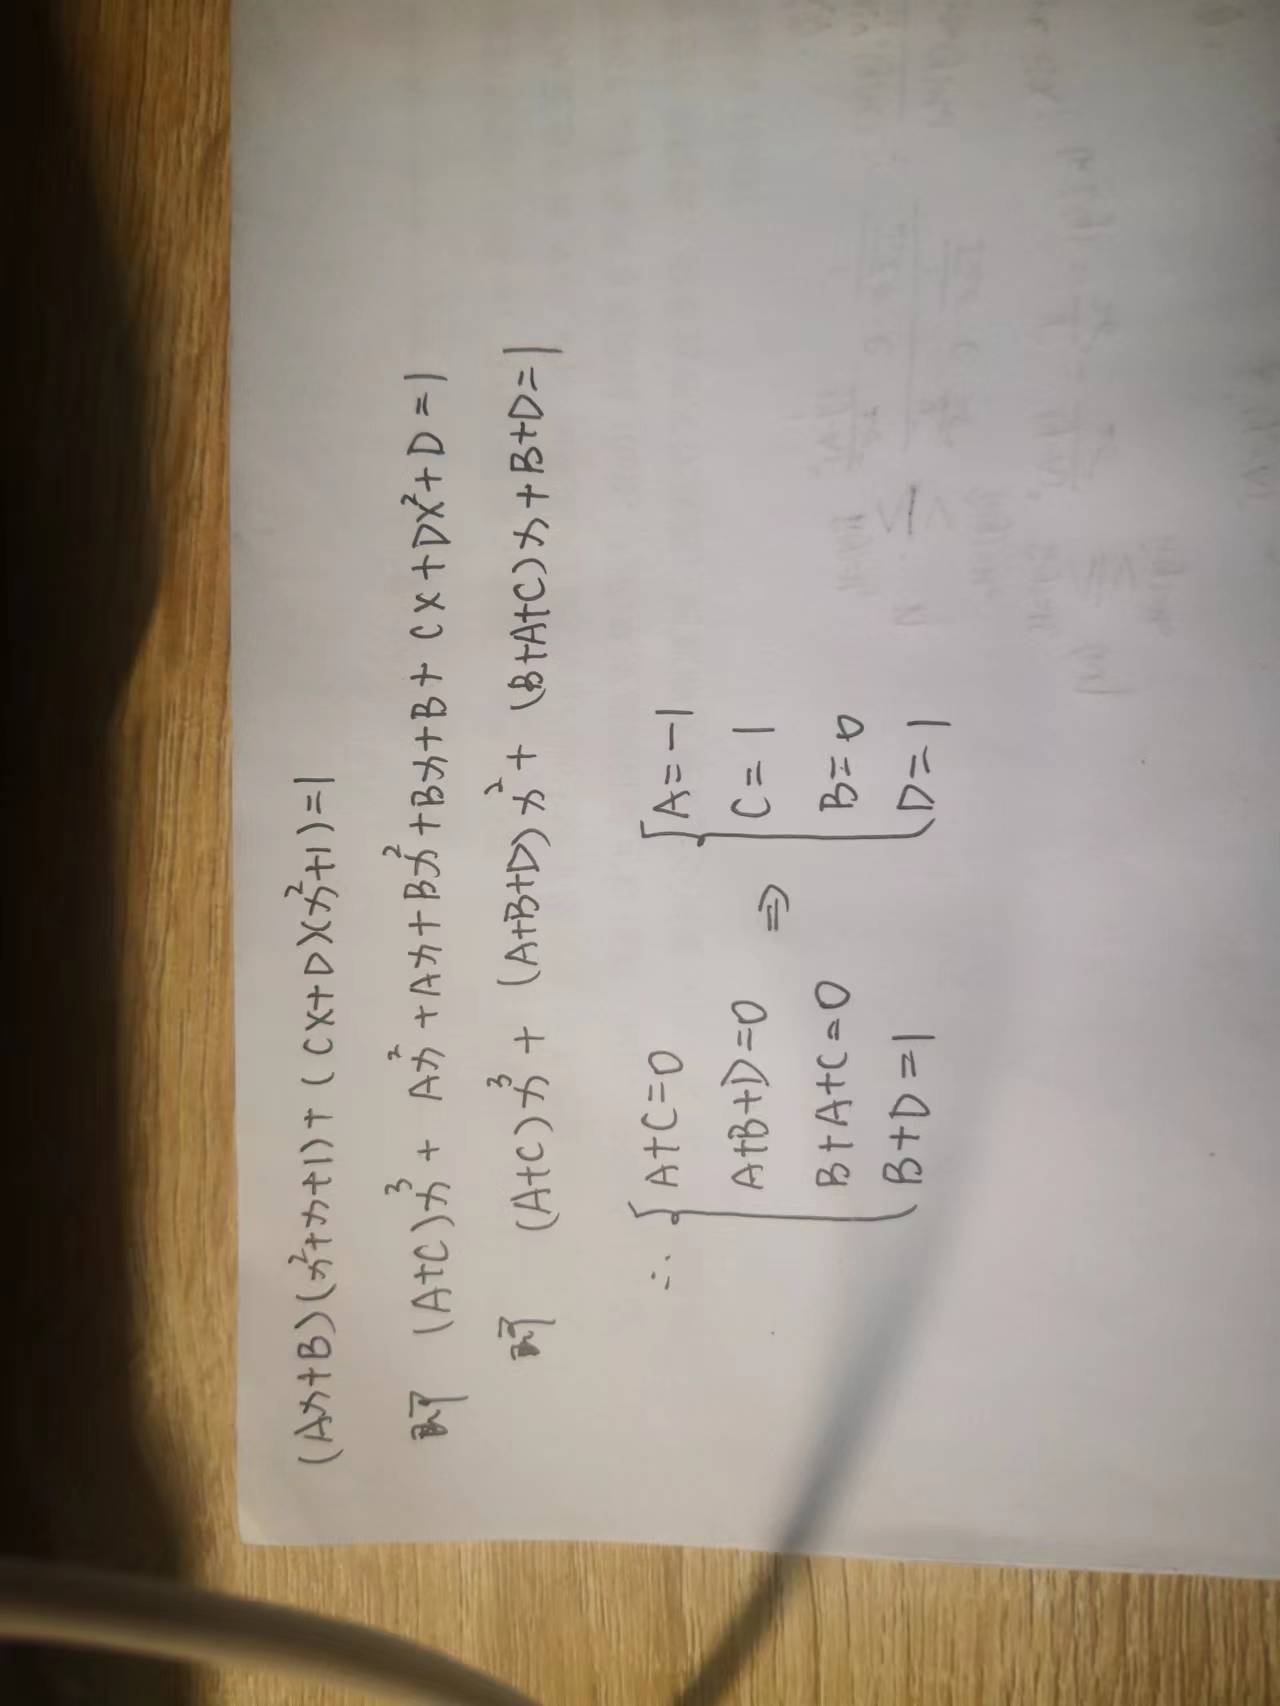 (Ax+B)(x²+x+1)+(Cx+D)(x²+1)=1
即 (A+C)x³+Ax²+Ax+Bx²+Bx+B+Cx+Dx²+D=1
即 (A+C)x³+(A+B+D)x²+(B+A+C)x+B+D=1
∴ { A+C=0 { A=-1
A+B+D=0 ⇒ C=1
B+A+C=0 B=0
B+D=1 D=1